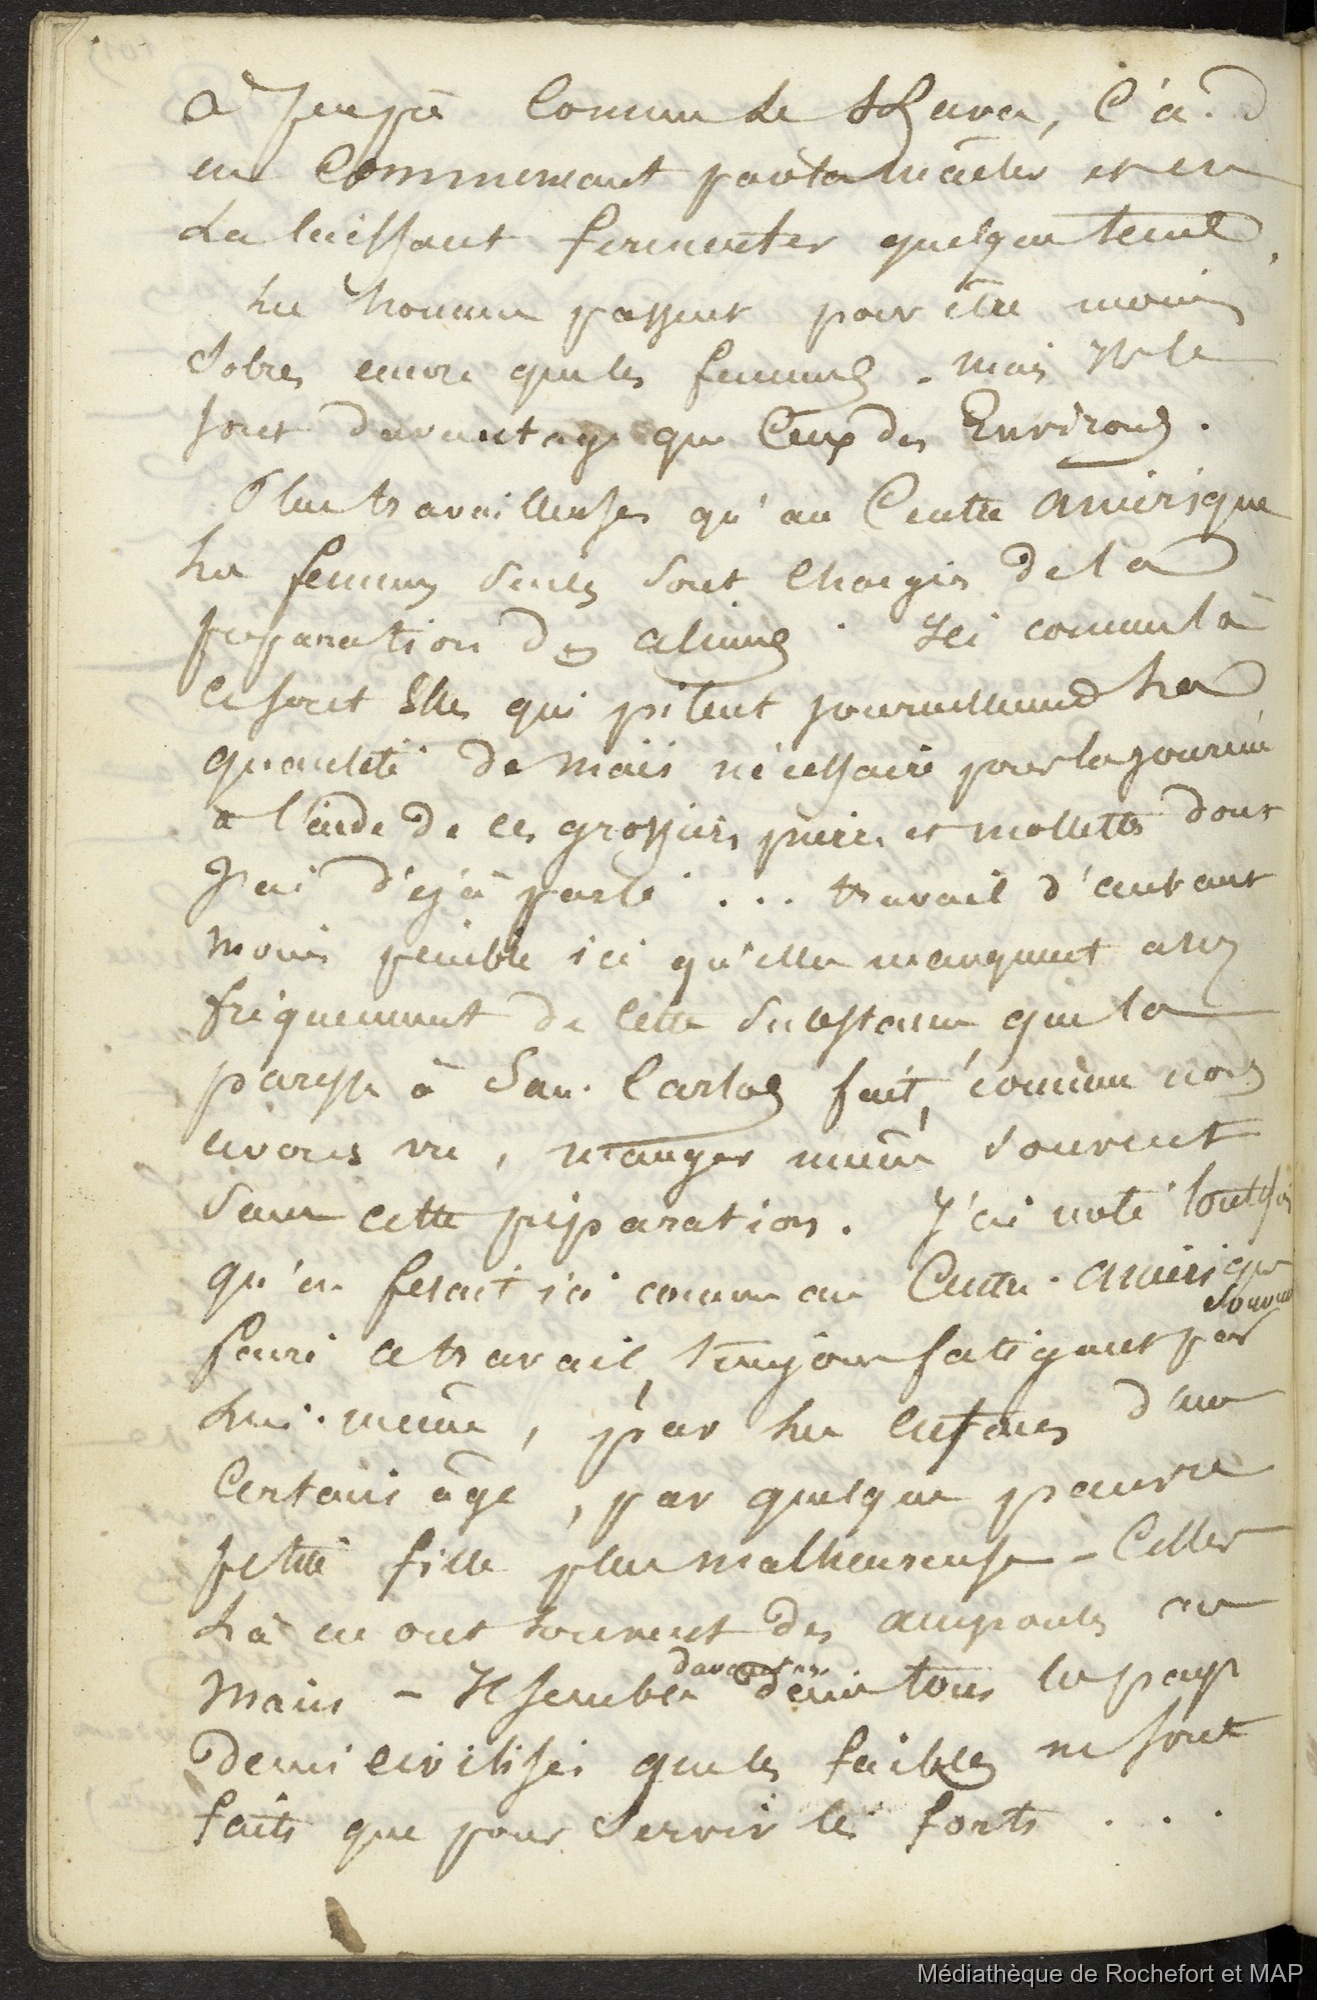 à peu près comme le Kava, c'à.d
en commencant par la mâcher et en
la laissant fermenter quelque tems.
Les hommes passent pour être moins
sobres encore que les femmes - mais ils le
sont davantage que ceux des Environs.
Plus travailleuses qu'au Centre amérique
les femmes seules sont chargées de la
préparation des alimens. Ici comme là
ce sont Elles qui pilent journellement la
quantité de maïs nécessaire pour la journée
à l'aide de ces grossières pierres et mollettes dont
j'ai déjà parlé ... travail d'autant
moins pénible ici qu'elles manquent assez
fréquemment de cette substance que la
paresse à San. Carlos fait, comme nous
avons vu, manger même souvent
sans cette préparation. J'ai noté toutefois
qu'on fesait ici comme au Centre-amérique
souvent
faire ce travail, toujours fatigant par
lui-même, par les enfans d'un
certain âge, par quelque pauvre
petite fille plus malheureuse - Celles
là en ont souvent des ampoules aux
mains - Il semble dans tous les pays
demi civilisés que les faibles ne sont
faits que pour servir les forts ...
Médiathèque de Rochefort et MAP